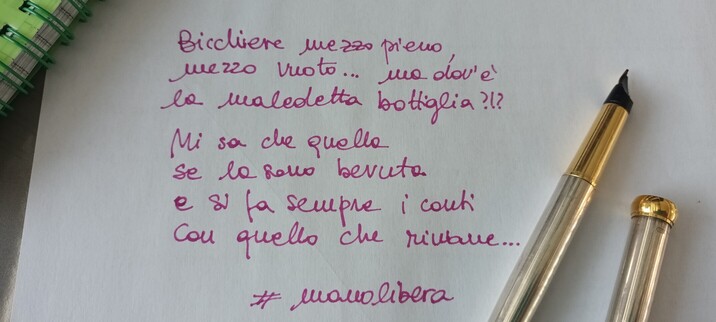 Bicchiere mezzo pieno,
mezzo vuoto... ma dov'è
la maledetta bottiglia?!?
Mi sa che quella
se la sono bevuta
e si fa sempre i conti
con quello che rimane...
# manolibera